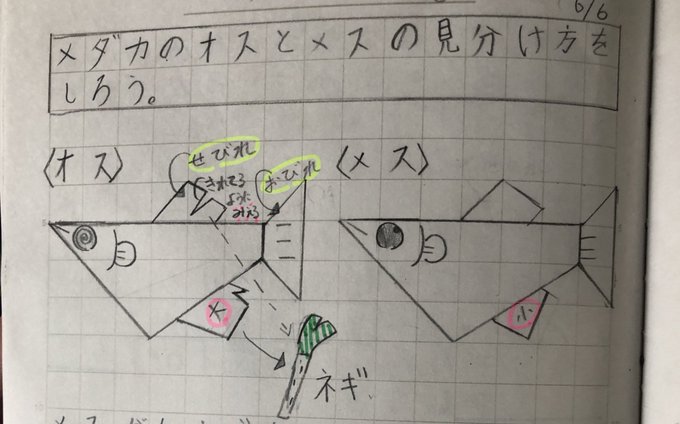 6/6
メダカのオスとメスの見分け方を
しろう。
〈オス〉
せびれ
きれてる
ように
みえる
おびれ
〈メス〉
大
小
ネギ